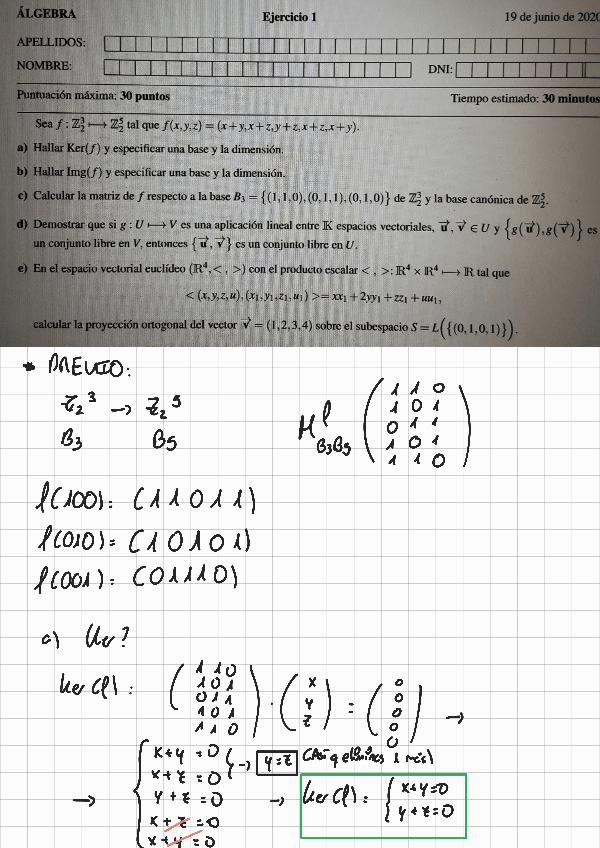 ÁLGEBRA Ejercicio 1 19 de junio de 2020
APELLIDOS:
NOMBRE: DNI:
Puntuación máxima: 30 puntos Tiempo estimado: 30 minutos
Sea f : ℤ₂³ ⟼ ℤ₂⁵ tal que f(x,y,z) = (x+y,x+z,y+z,x+z,x+y).
a) Hallar Ker(f) y especificar una base y la dimensión.
b) Hallar Img(f) y especificar una base y la dimensión.
c) Calcular la matriz de f respecto a la base B₃ = {(1,1,0),(0,1,1),(0,1,0)} de ℤ₂³ y la base canónica de ℤ₂⁵.
d) Demostrar que si g : U ⟼ V es una aplicación lineal entre 𝕂 espacios vectoriales, u⃗, v⃗ ∈ U y {g(u⃗),g(v⃗)} es
un conjunto libre en V, entonces {u⃗, v⃗} es un conjunto libre en U.
e) En el espacio vectorial euclídeo (ℝ⁴,< , >) con el producto escalar < , >: ℝ⁴ × ℝ⁴ ⟼ ℝ tal que
< (x,y,z,u),(x₁,y₁,z₁,u₁) >= xx₁ + 2yy₁ + zz₁ + uu₁,
calcular la proyección ortogonal del vector v⃗ = (1,2,3,4) sobre el subespacio S = L({(0,1,0,1)}).
* PREVIO:
ℤ₂³ → ℤ₂⁵
B3 B5
M f B3B5
1 1 0
1 0 1
0 1 1
1 0 1
1 1 0
f(100) = (1 1 0 1 1)
f(010) = (1 0 1 0 1)
f(001) = (0 1 1 1 0)
a) Ker?
Ker(f) :
1 1 0
1 0 1
0 1 1
1 0 1
1 1 0
·
x
y
z
=
0
0
0
0
0
→
→
x+y = 0
x+z = 0
→ y=z
y+z = 0
x+z = 0
x+y = 0
→ Ker(f) : { x+y=0
y+z=0